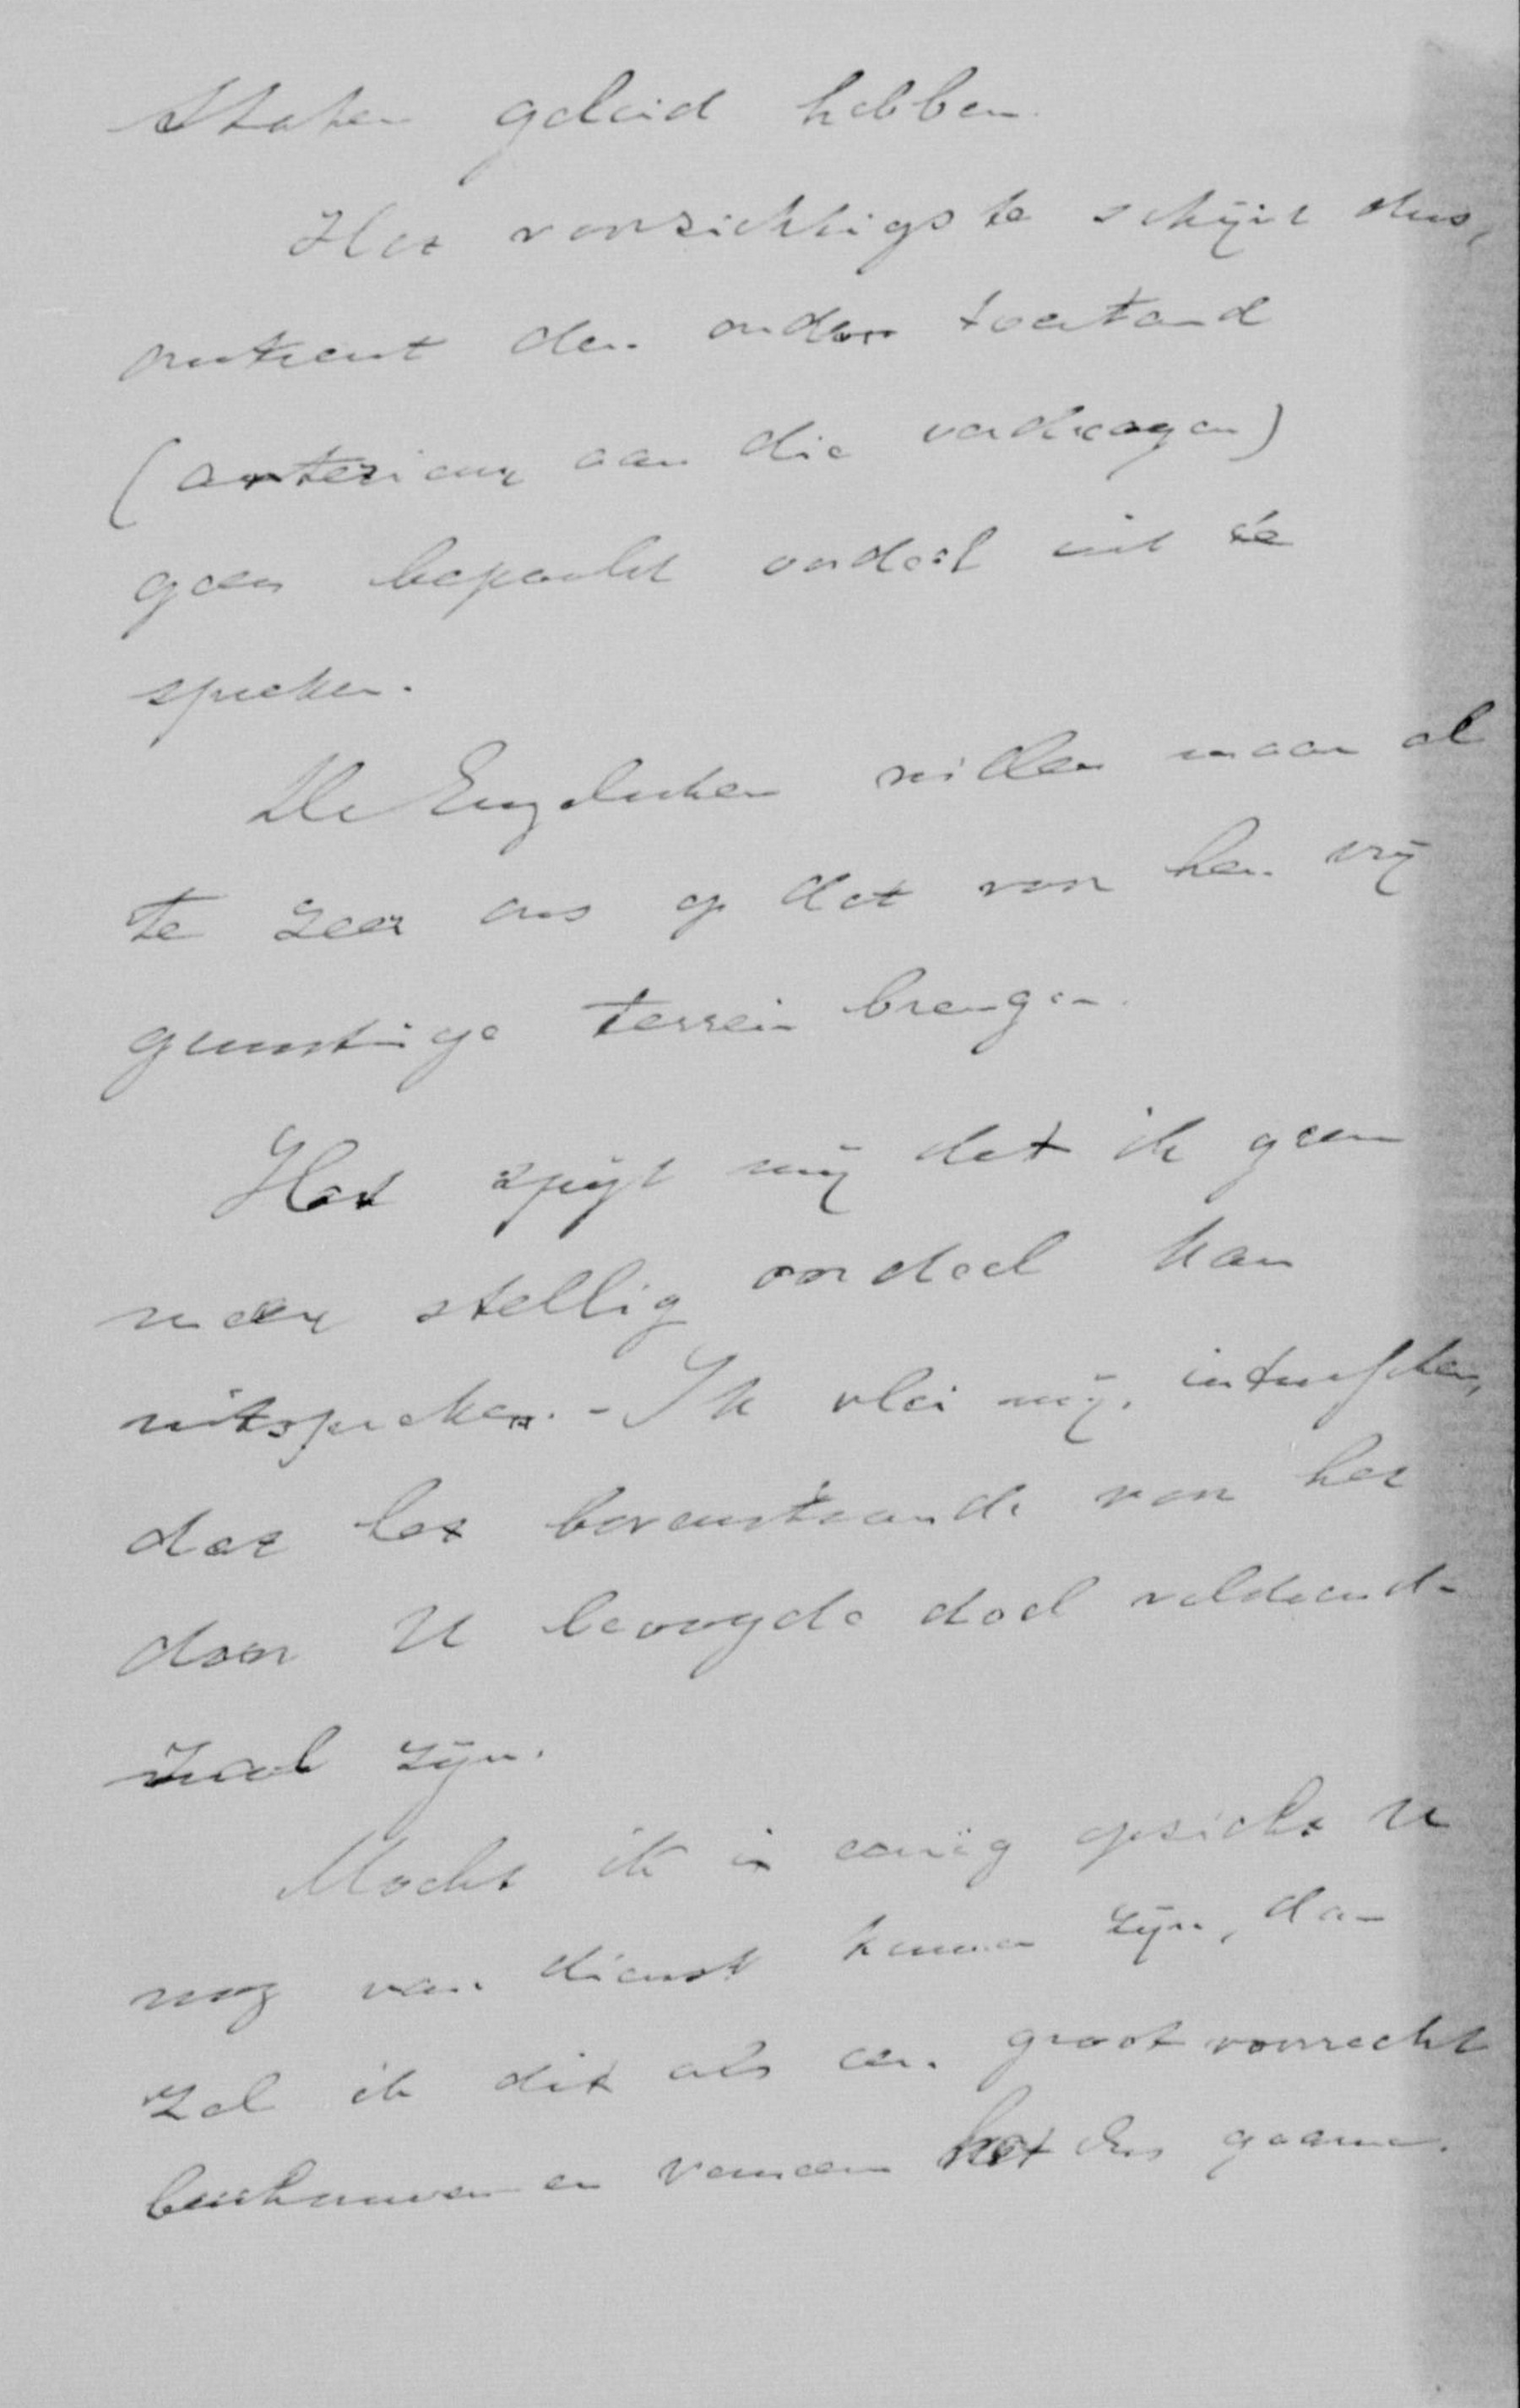 Staten geleid hebben.
Het voorzichtigste schijnt dus,
omtrent den ouden toestand
(anterieur aan die verdragen)
geen bepaald oordeel uit te
spreken.
De Engelschen willen maar al
te zeer ons op dat voor hen vrij
gunstige terrein brengen.
Het spijt mij dat ik geen
meer stellig oordeel kan
uitspreken. - Ik vlei mij, intusschen,
dat het bovenstaande voor het
door U beoogde doel voldoend-
zaal zijn.
Mocht ik in eenig opzicht U
nog van dienst kunnen zijn, dan
zal ik dit als een groot voorrecht
beschouwen en verneem het dus gaarne.